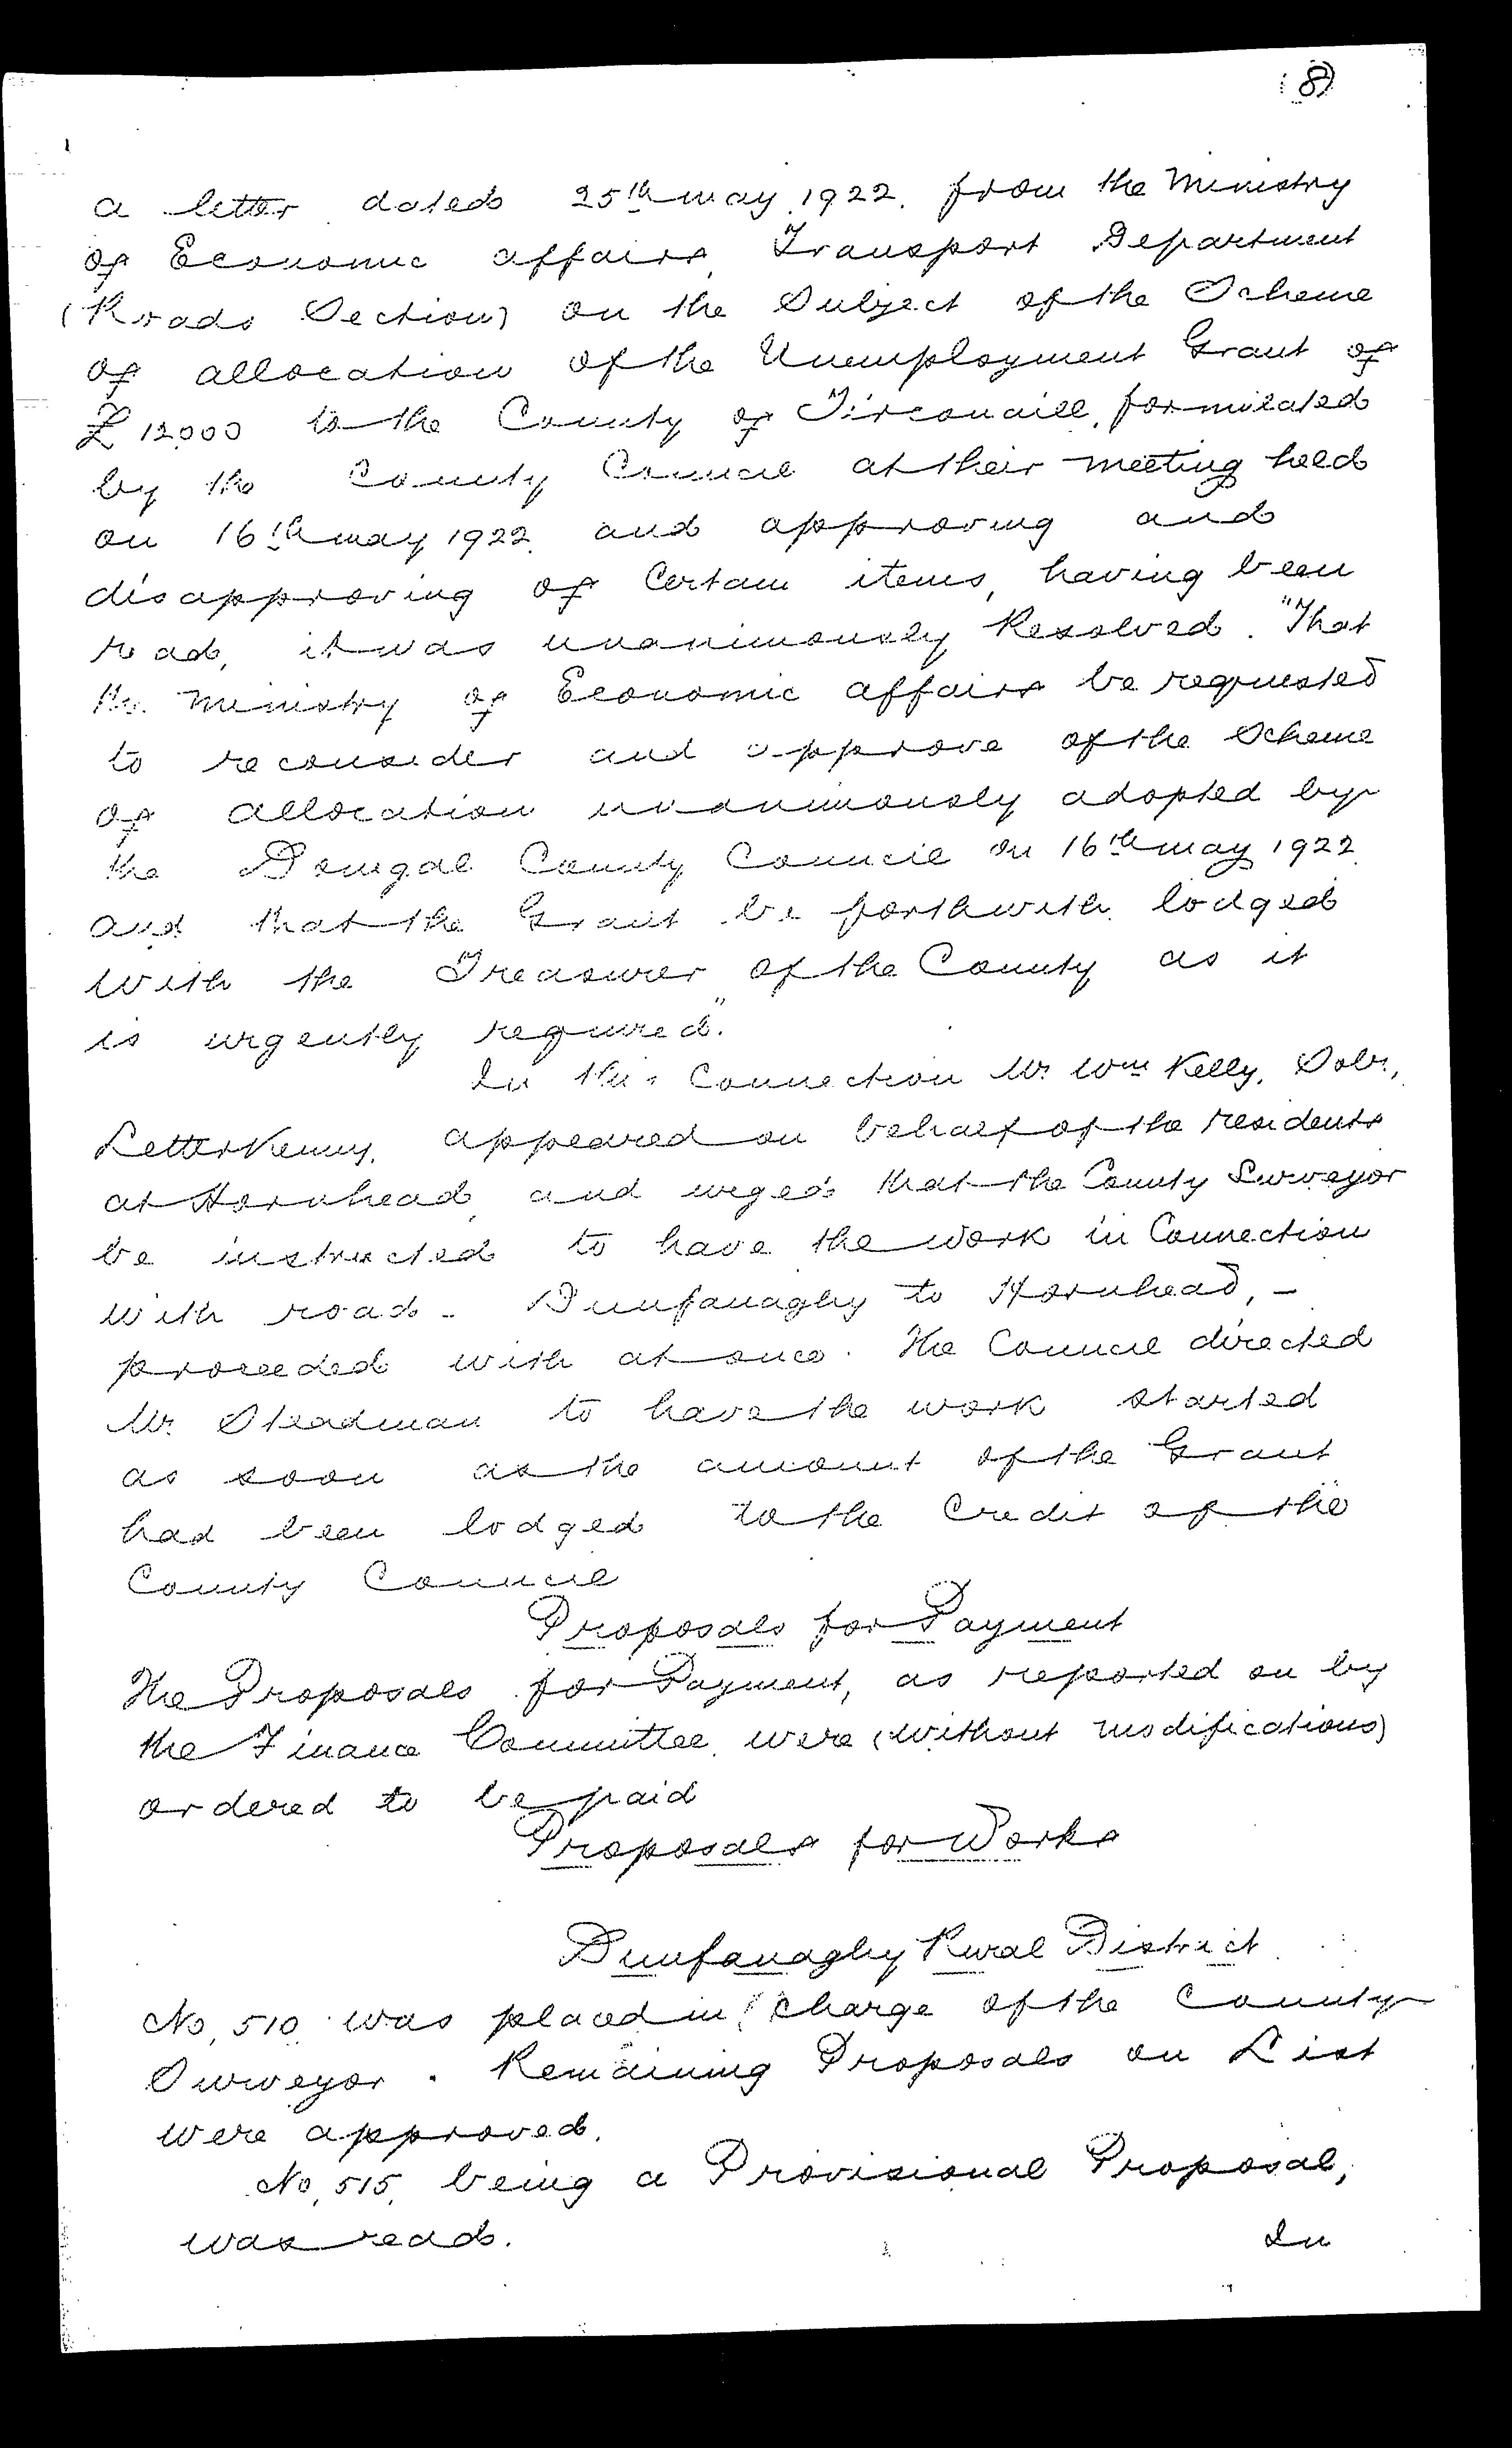 8)
a letter dated 25th may 1922. from the Ministry
of Economic affairs, Transport Department
(Roads Section) on the Subject of the Scheme
of allocation of the Unemployment Grant of
£12000 to the County of Tirconaill, formulated
by the County Council at their meeting held
on 16th may 1922. and approving and
disapproving of Certain items, having been
read, it was unanimously Resolved. "That
the Ministry of Economic affairs be requested
to reconsider and approve of the Scheme
of allocation unanimously adopted by
the Donegal County Council on 16th may 1922.
and that the Grant be forthwith lodged
with the Treasurer of the County as it
is urgently required."
In this Connection Mr. Wm Kelly, Solr.,
Letterkenny, appeared on behalf of the residents
at Hornhead, and urged that the County Surveyor
be instructed to have the work in Connection
with road - Dunfanaghy to Hornhead, -
proceeded with at once. The Council directed
Mr. Steadman to have the work started
as soon as the amount of the Grant
had been lodged to the Credit of the
County Council
Proposals for Payment
The Proposals for Payment, as reported on by
the Finance Committee, were (without modifications)
ordered to be paid
Proposals for Works
Dunfanaghy Rural District
No, 510 was placed in charge of the County
Surveyor. Remaining Proposals on List
were approved.
No, 515, being a Provisional Proposal,
was read.
In